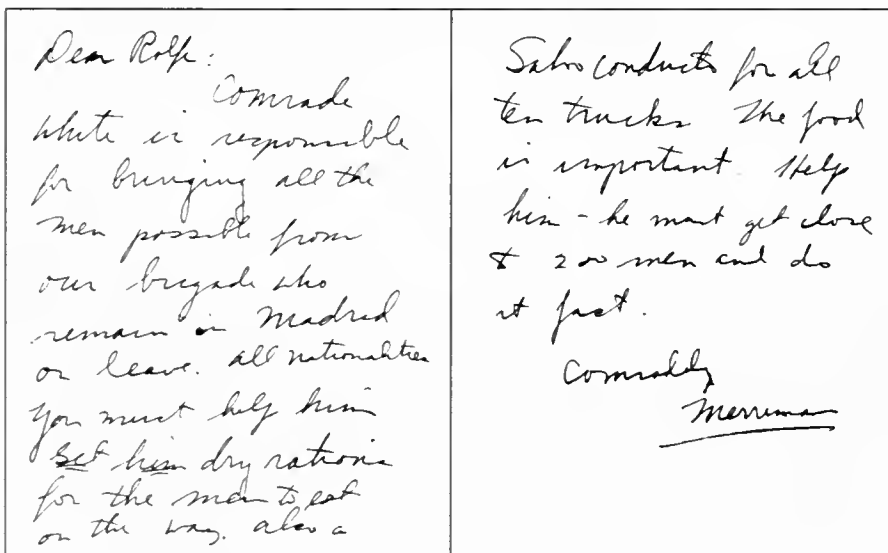 Dear Rolfe:
Comrade
White is responsible
for bringing all the
men possible from
our brigade who
remain in Madrid
on leave. all nationalities
You must help him
Get him dry rations
for the men to eat
on the way. also a
Salvo conducto for all
ten trucks The food
is important Help
him - he must get close
to 200 men and do
it fast.
Comradely
Merriman